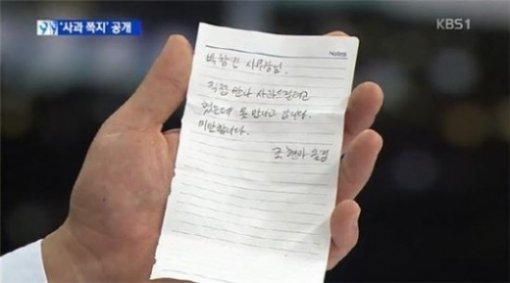 '사과 쪽지' 공개
KBS1
Notes
박창진 사무장님.
직접 만나 사과드릴려고
했는데 못 만나고 갑니다.
미안합니다.
조현아 올림